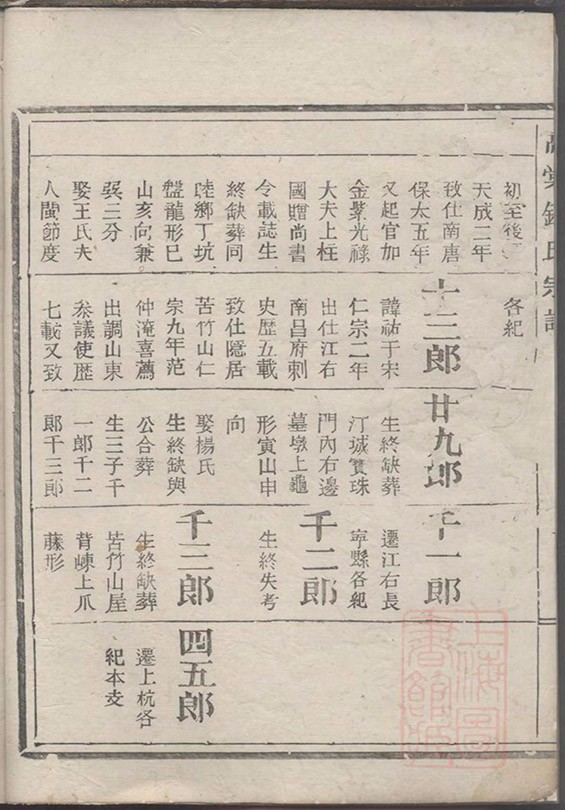 氏宗譜
初至後
天成二年
致仕南唐
保大五年
又起官加
金紫光祿
大夫上柱
國贈尚書
令載誌生
終缺葬同
睦鄉丁坑
盤龍形巳
山亥向兼
巽三分
娶王氏夫
人閩節度
各紀
十三郎
諱祐于宋
仁宗二年
出仕江右
南昌府刺
史歷五載
致仕隱居
苦竹山仁
宗九年范
仲淹喜薦
出調山東
叅議使歷
七載又致
廿九郎
生終缺葬
汀城寶珠
門內右邊
墓墩上龜
形寅山申
向
娶楊氏
生終缺與
公合葬
生三子千
一郎千二
郎千三郎
千一郎
遷江右長
寧縣各紀
千二郎
生終失考
千三郎
生終缺葬
苦竹山屋
背崠上爪
藤形
四五郎
遷上杭各
紀本支
上海圖
書館藏